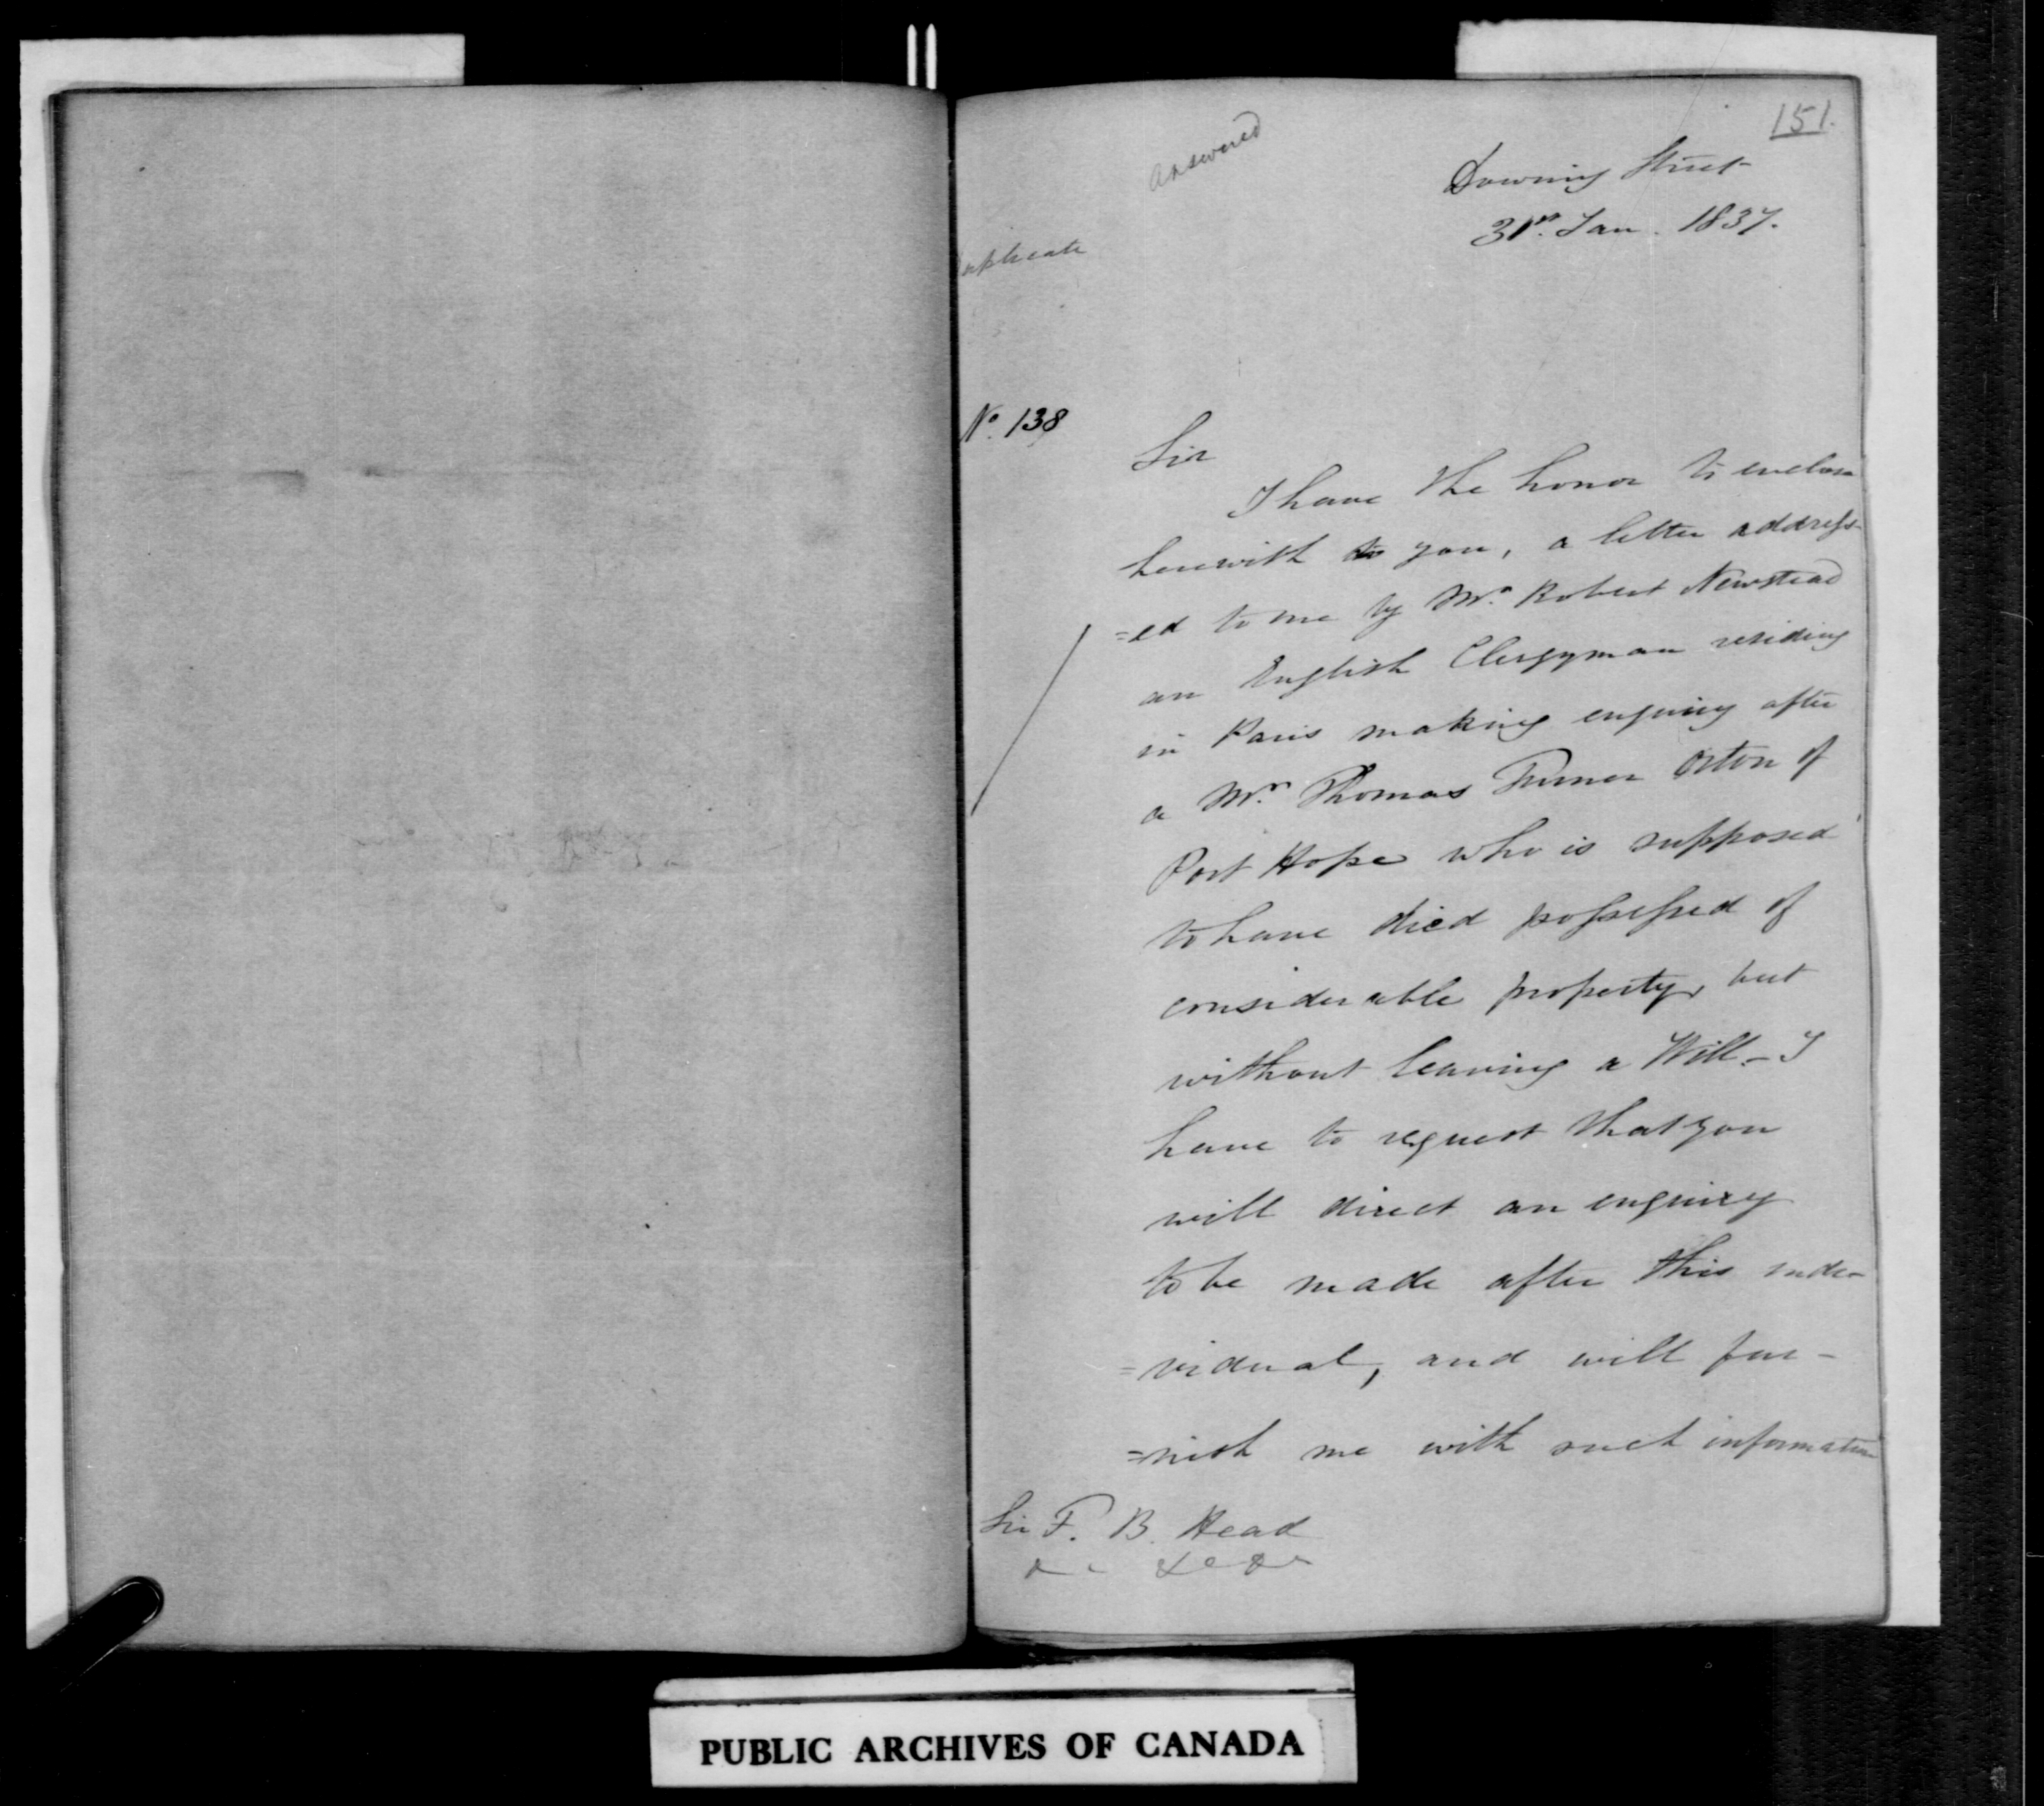 151.
answered
Downing Street
31st. Jan. 1837.
uplicate
No. 138
Sir
I have the honor to enclose
herewith to you, a letter address-
=ed to me by Mr. Robert Newstead
an English Clergyman residing
in Paris making enquiry after
a Mr. Thomas Turner Orton of
Port Hope who is supposed
to have died possessed of
considerable property, but
without leaving a Will. - I
have to request that you
will direct an enquiry
to be made after this indi-
=vidual, and will fur-
=nish me with such information
Sir F. B. Head
&c &c &c
PUBLIC ARCHIVES OF CANADA